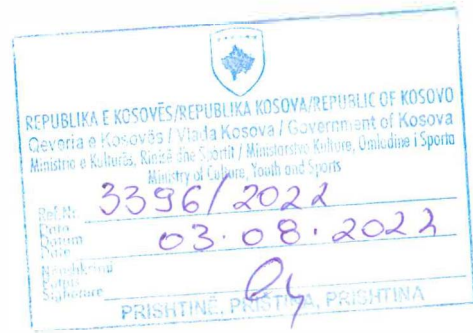 REPUBLIKA E KOSOVËS/REPUBLIKA KOSOVA/REPUBLIC OF KOSOVO
Qeveria e Kosovës / Vlada Kosova / Government of Kosova
Ministria e Kulturës, Rinisë dhe Sportit / Ministarstvo Kulture, Omladine i Sporta
Ministry of Culture, Youth and Sports
Ref.Nr. 3396/2022
Datum
Date 03.08.2022
Nënshkrimi
Potpis
Signature
PRISHTINË, PRIŠTINA, PRISHTINA